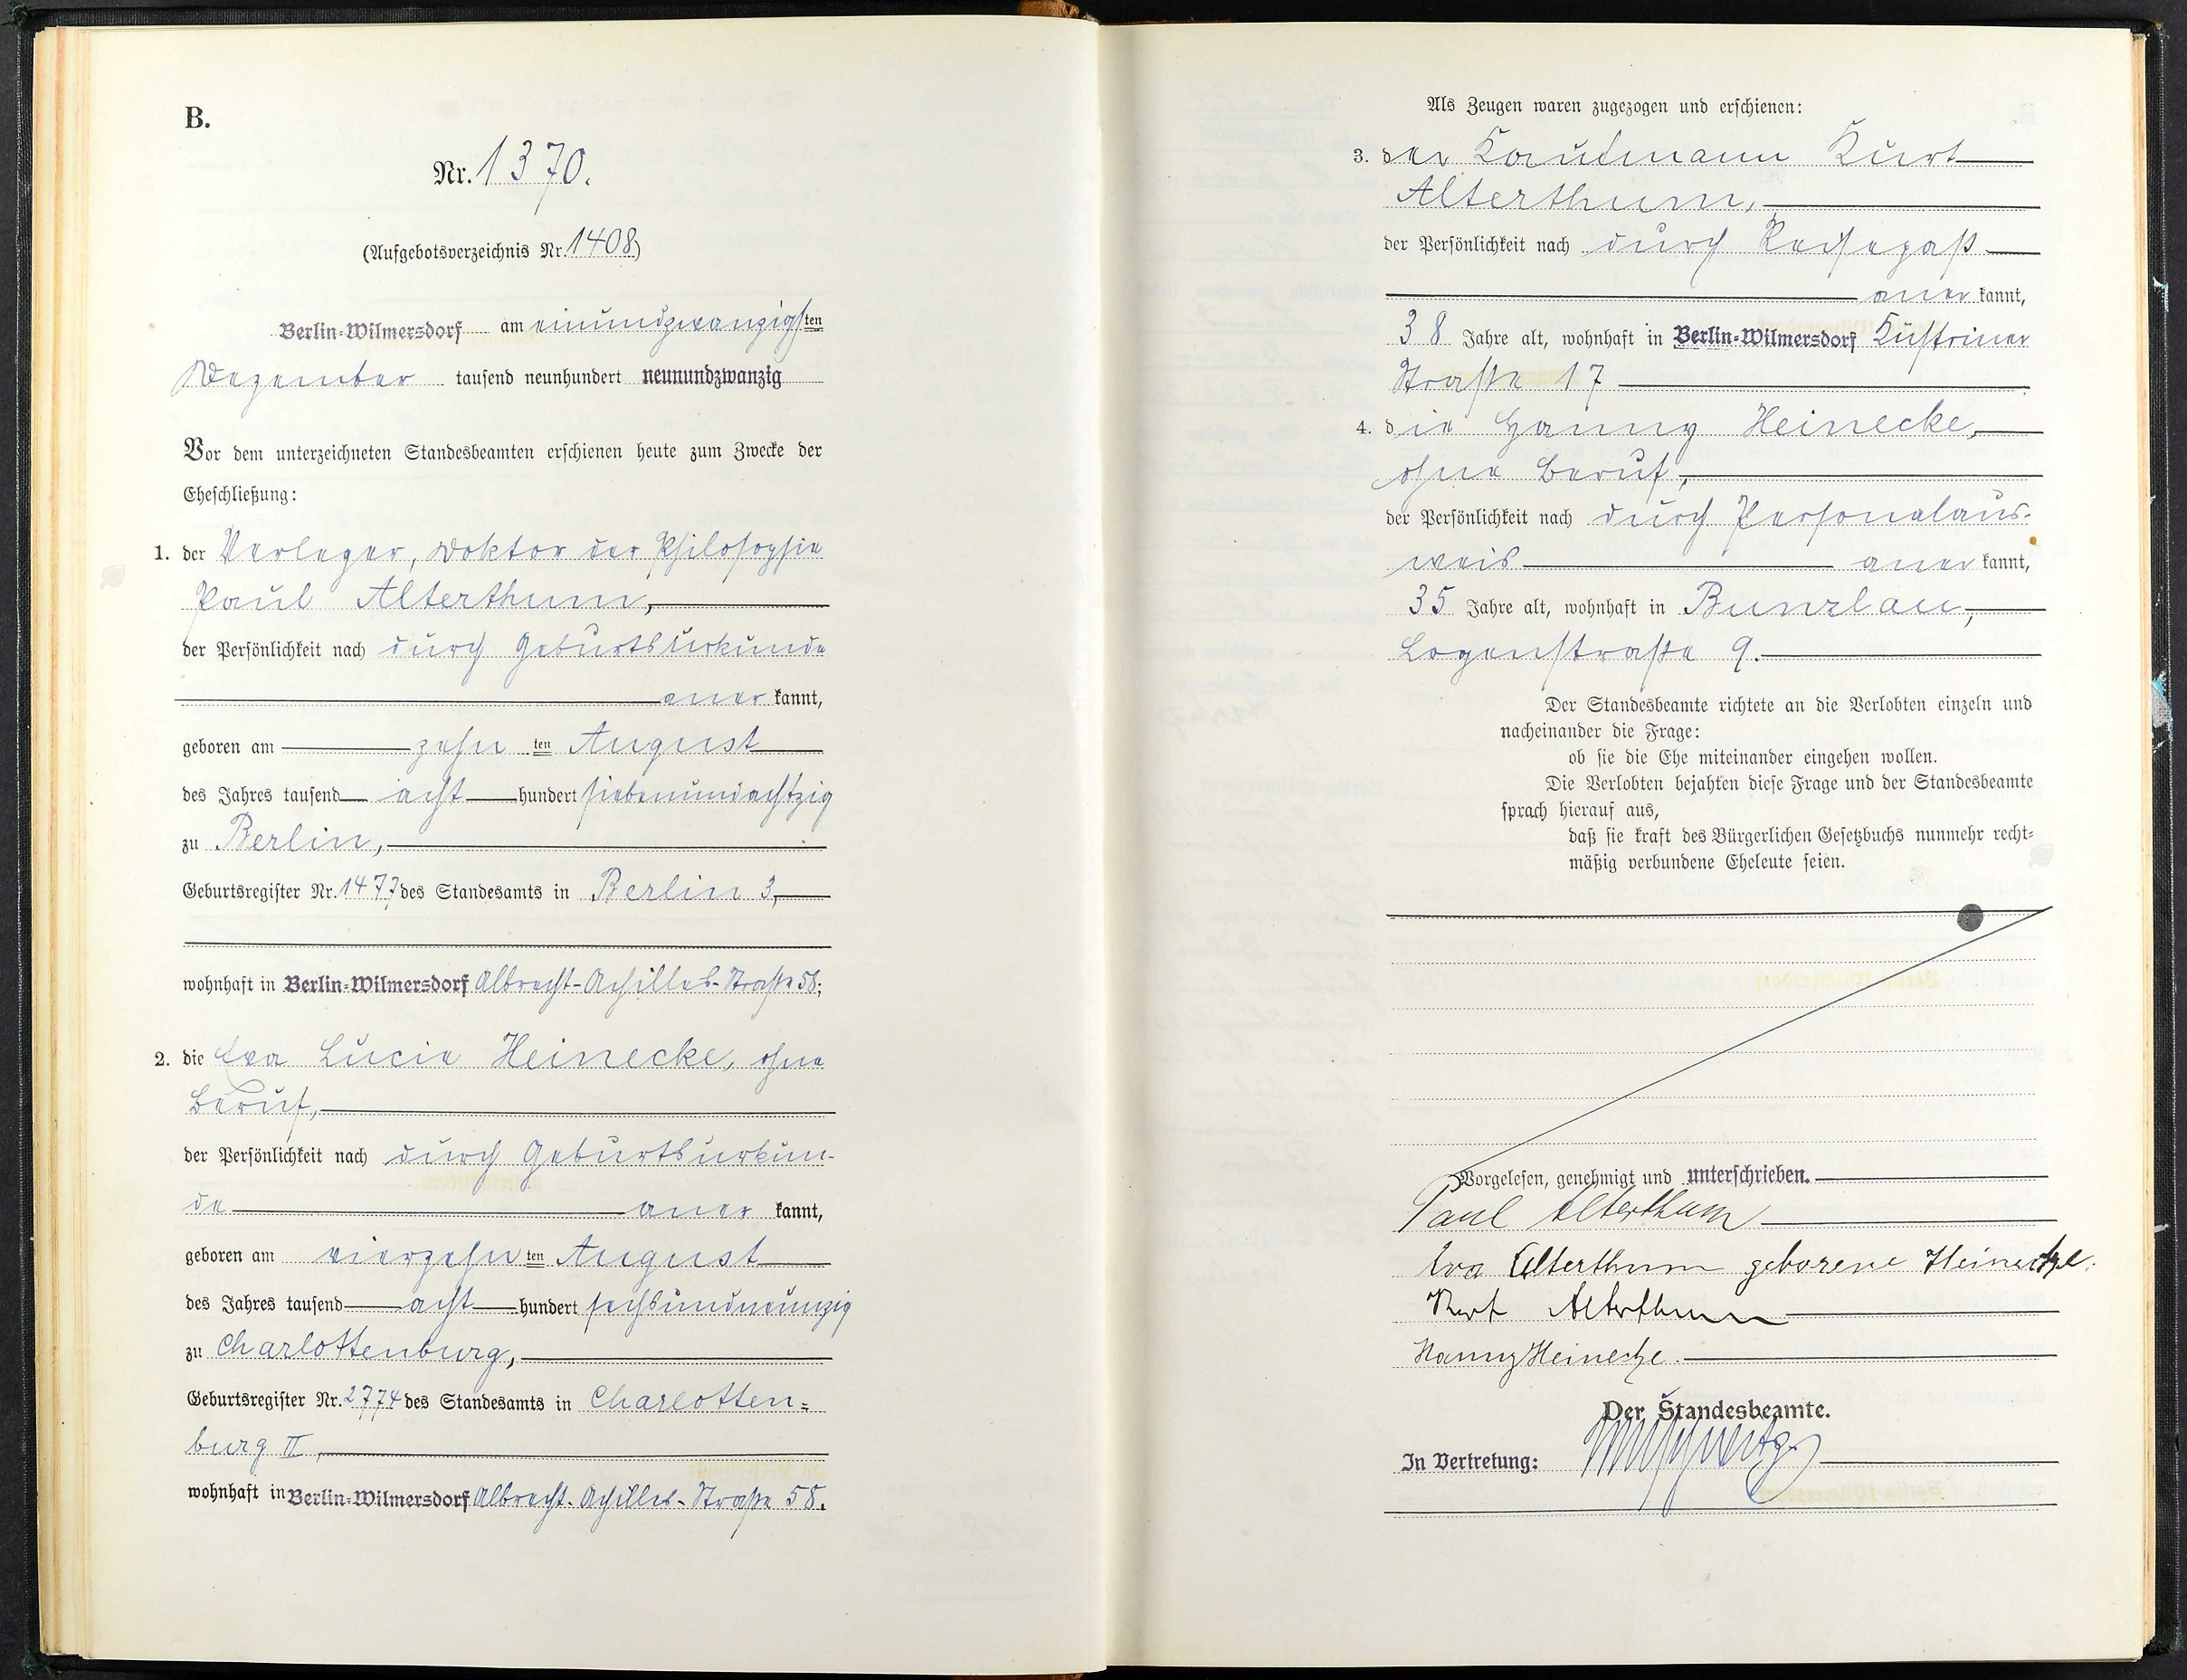 B.
Nr. 1370.
(Aufgebotsverzeichnis Nr. 1408)
Berlin-Wilmersdorf am einundzwanzigsten
Dezember tausend neunhundert neunundzwanzig
Vor dem unterzeichneten Standesbeamten erschienen heute zum Zwecke der
Eheschließung:
1. der Verleger, Doktor der Philosophie
Paul Alterthum,
der Persönlichkeit nach durch Geburtsurkunde
aner kannt,
geboren am zehn ten August
des Jahres tausend acht hundert siebenundachtzig
zu Berlin,
Geburtsregister Nr. 1477 des Standesamts in Berlin 3,
wohnhaft in Berlin-Wilmersdorf Albrecht-Achilles-Straße 58;
2. die Eva Lucie Heinecke, ohne
Beruf,
der Persönlichkeit nach durch Geburtsurkun-
de aner kannt,
geboren am vierzehn ten August
des Jahres tausend acht hundert sechsundneunzig
zu Charlottenburg,
Geburtsregister Nr. 2774 des Standesamts in Charlotten=
burg II,
wohnhaft in Berlin-Wilmersdorf Albrecht-Achilles-Straße 58.
Als Zeugen waren zugezogen und erschienen:
3. der Kaufmann Kurt
Alterthum,
der Persönlichkeit nach durch Reisepaß
aner kannt,
38 Jahre alt, wohnhaft in Berlin-Wilmersdorf Küstriner
Straße 17
4. die Hanny Heinecke,
ohne Beruf,
der Persönlichkeit nach durch Personalaus-
weis aner kannt,
35 Jahre alt, wohnhaft in Bunzlau,
Logenstraße 9.
Der Standesbeamte richtete an die Verlobten einzeln und
nacheinander die Frage:
ob sie die Ehe miteinander eingehen wollen.
Die Verlobten bejahten diese Frage und der Standesbeamte
sprach hierauf aus,
daß sie kraft des Bürgerlichen Gesetzbuchs nunmehr recht=
mäßig verbundene Eheleute seien.
Vorgelesen, genehmigt und unterschrieben.
Paul Alterthum
Eva Alterthum geborene Heinecke.
Kurt Alterthum
Hanny Heinecke.
Der Standesbeamte.
In Vertretung: